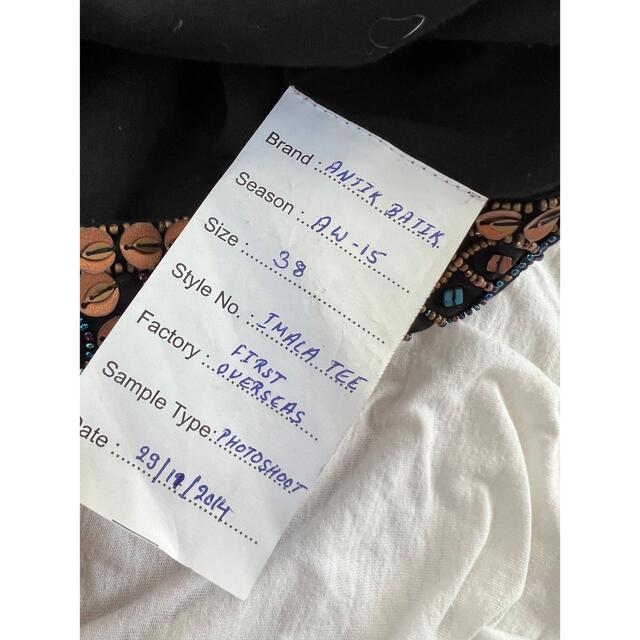 Brand : ANTIK BATIK
Season : AW-15
Size : 38
Style No. IMALA TEE
Factory : FIRST
OVERSEAS
Sample Type: PHOTOSHOOT
Date : 29/12/2014